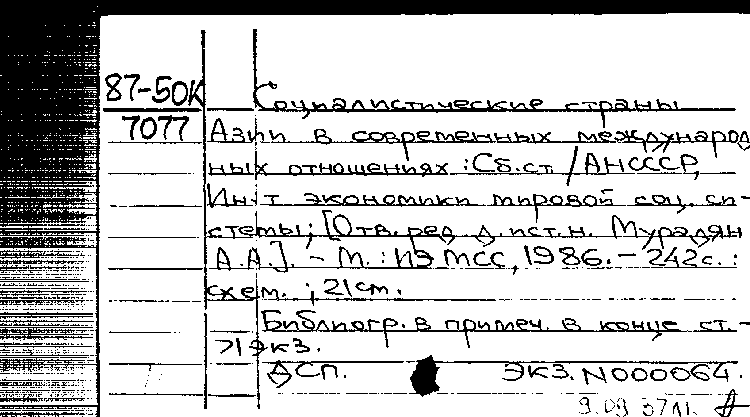 87-50К Социалистические страны
7077 Азии в современных международ
ных отношениях : Сб.ст / АНСССР,
Ин-т экономики мировой соц. си-
стемы; [Отв. ред. д. ист. н. Мурадян
А.А.]. - М. : ИЭМСС, 1986. - 242с. :
схем. ; 21см.
Библиогр. в примеч. в конце ст. -
71экз.
ДСП. ЭКЗ. N000064.